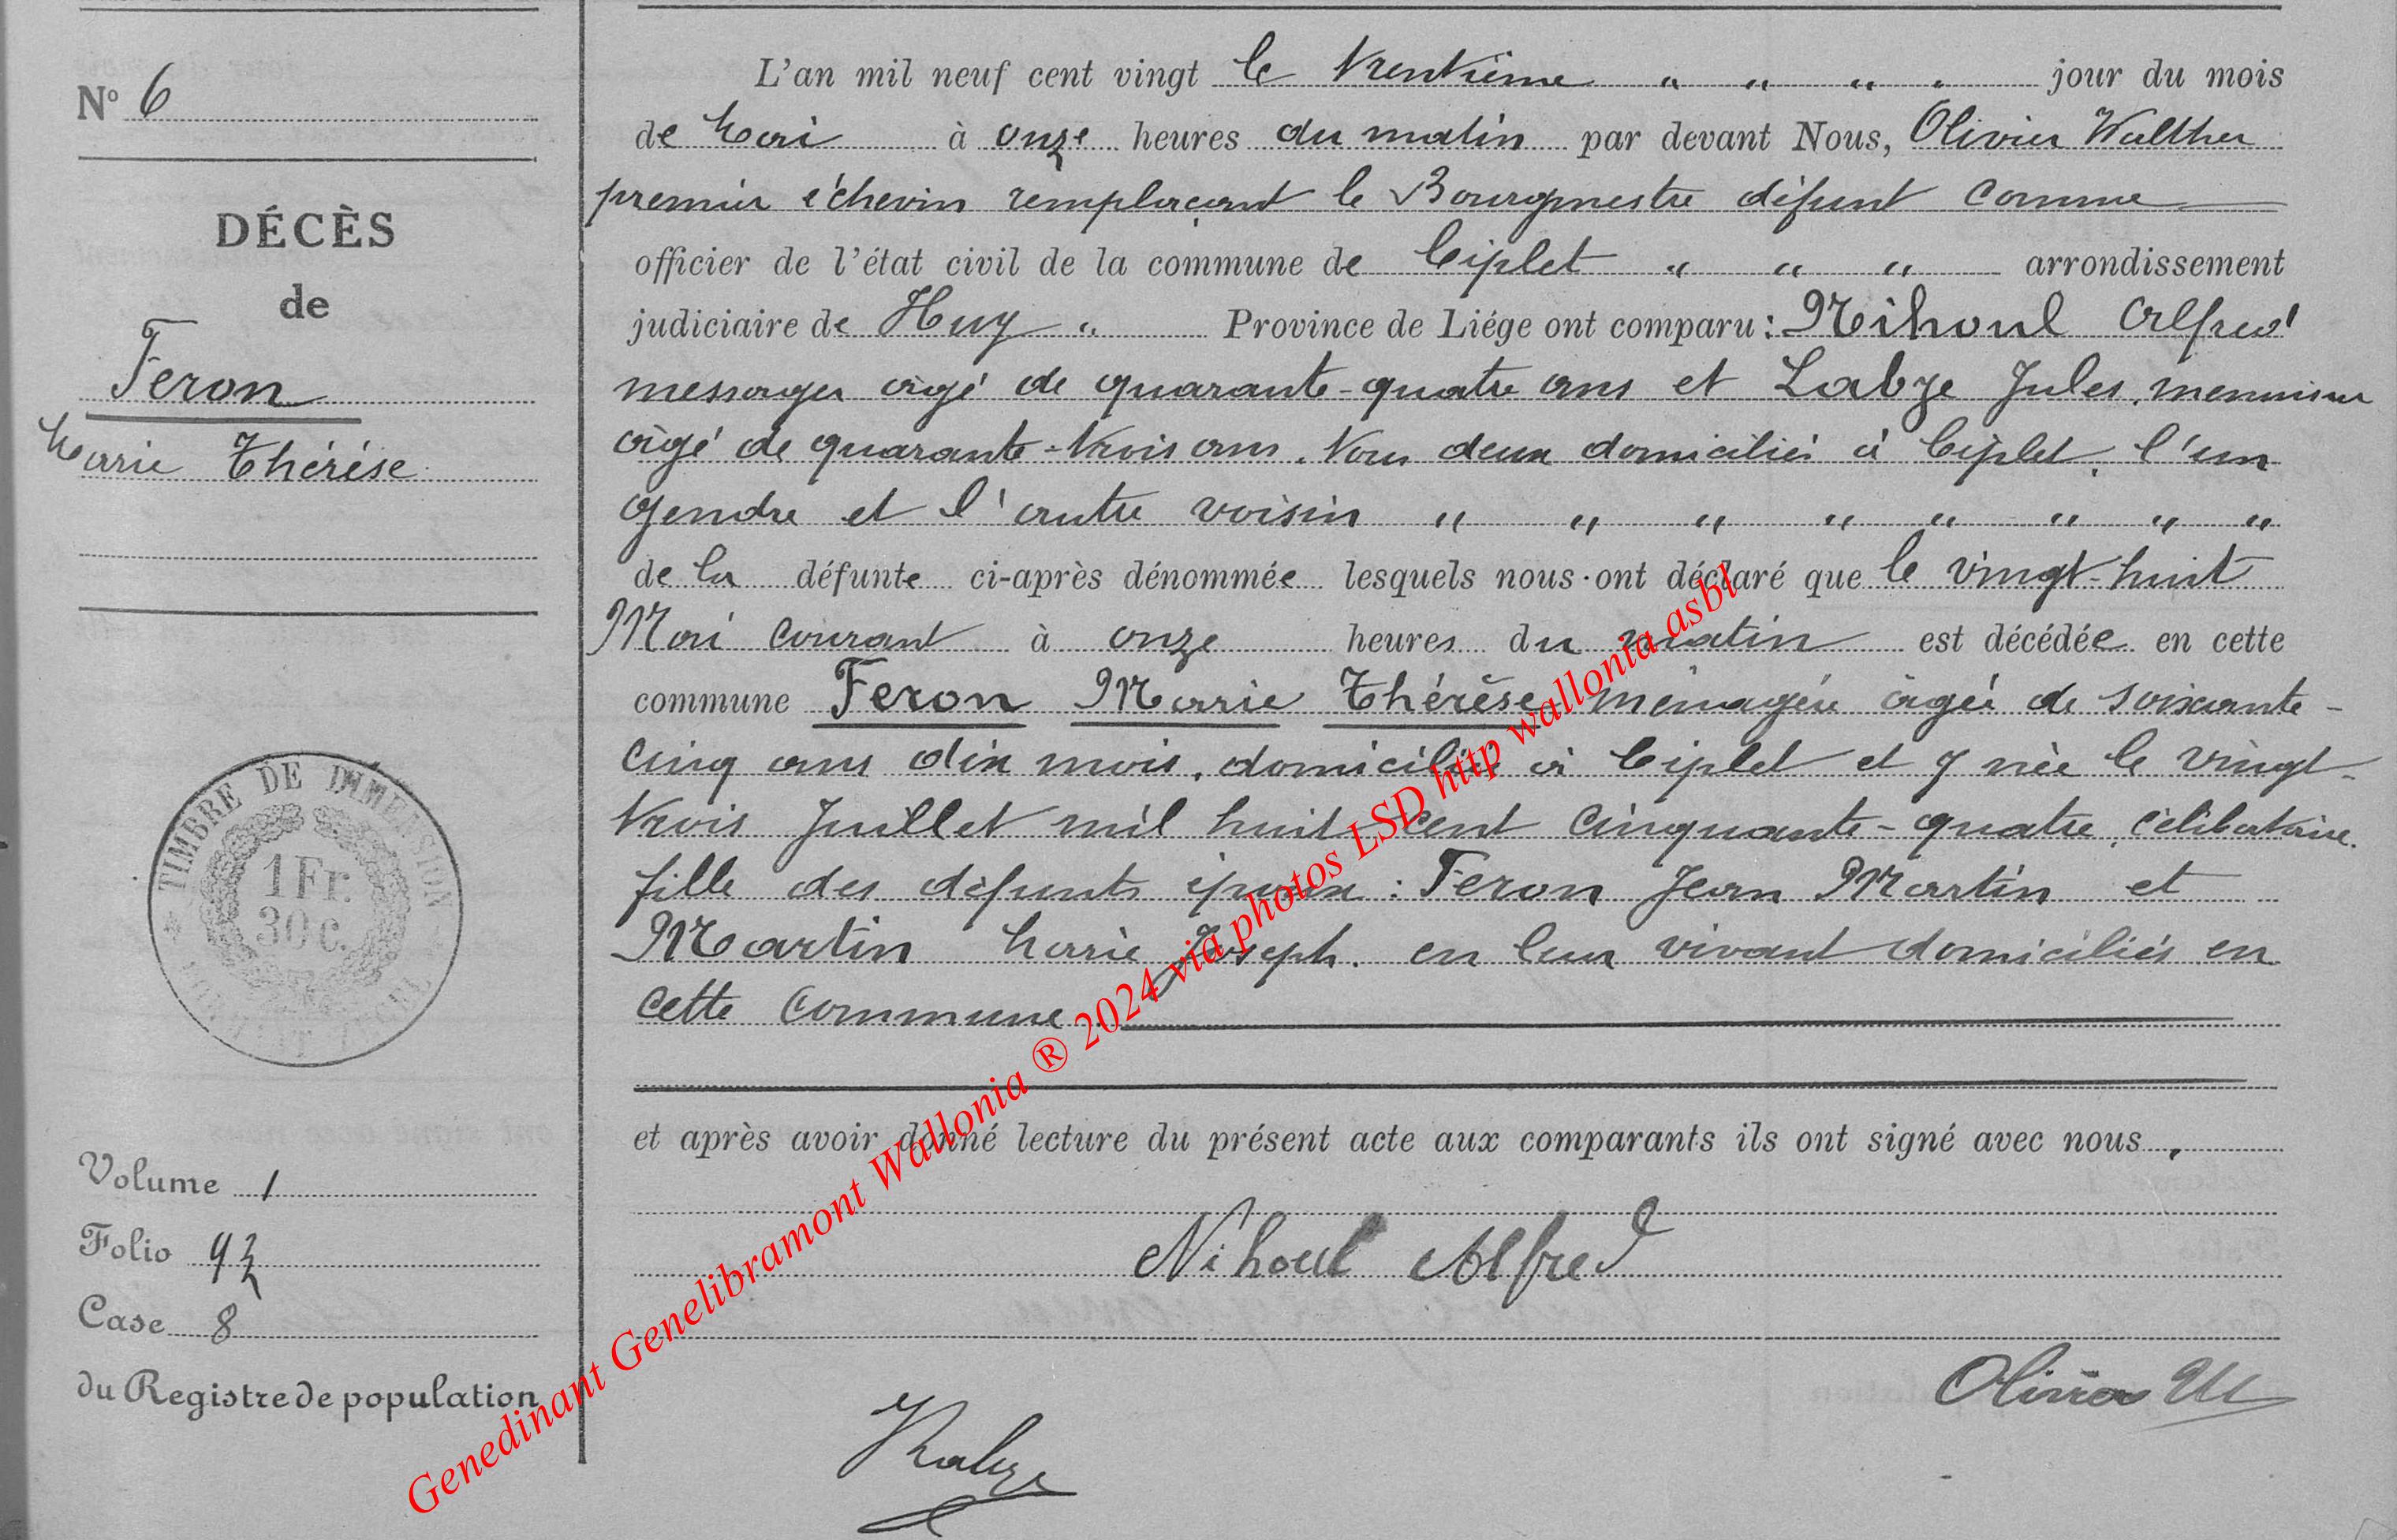 N° 6
DÉCÈS
de
Feron
Marie Thérése
TIMBRE DE DIMENSION
1 Fr.
30 c.
Volume 1
Folio 93
Case 8
du Registre de population
L'an mil neuf cent vingt le trentième " " " " jour du mois
de Mai à onze heures du matin par devant Nous, Olivier Walther
premier échevin remplaçant le Bourgmestre défunt comme
officier de l'état civil de la commune de Ciplet " " " arrondissement
judiciaire de Huy " Province de Liége ont comparu : Nihoul Alfred
messager âgé de quarante-quatre ans et Labye Jules, menuisier
âgé de quarante-trois ans. Tous deux domiciliés à Ciplet, l'un
gendre et l'autre voisin " " " " " " " "
de la défunte ci-après dénommée lesquels nous ont déclaré que le vingt-huit
Mai courant à onze heures du matin est décédée en cette
commune Feron Marie Thérèse ménagère âgée de soixante-
cinq ans dix mois, domiciliée à Ciplet et y née le vingt-
trois Juillet mil huit cent cinquante-quatre, célibataire.
fille des défunts époux : Feron Jean Martin et
Martin Marie Joseph. en leur vivant domiciliés en
cette commune.
et après avoir donné lecture du présent acte aux comparants ils ont signé avec nous.
Nihoul Alfred
Olivier W
Labye
Genedinant Genelibramont Wallonia ® 2024 via photos LSD http wallonia asbl